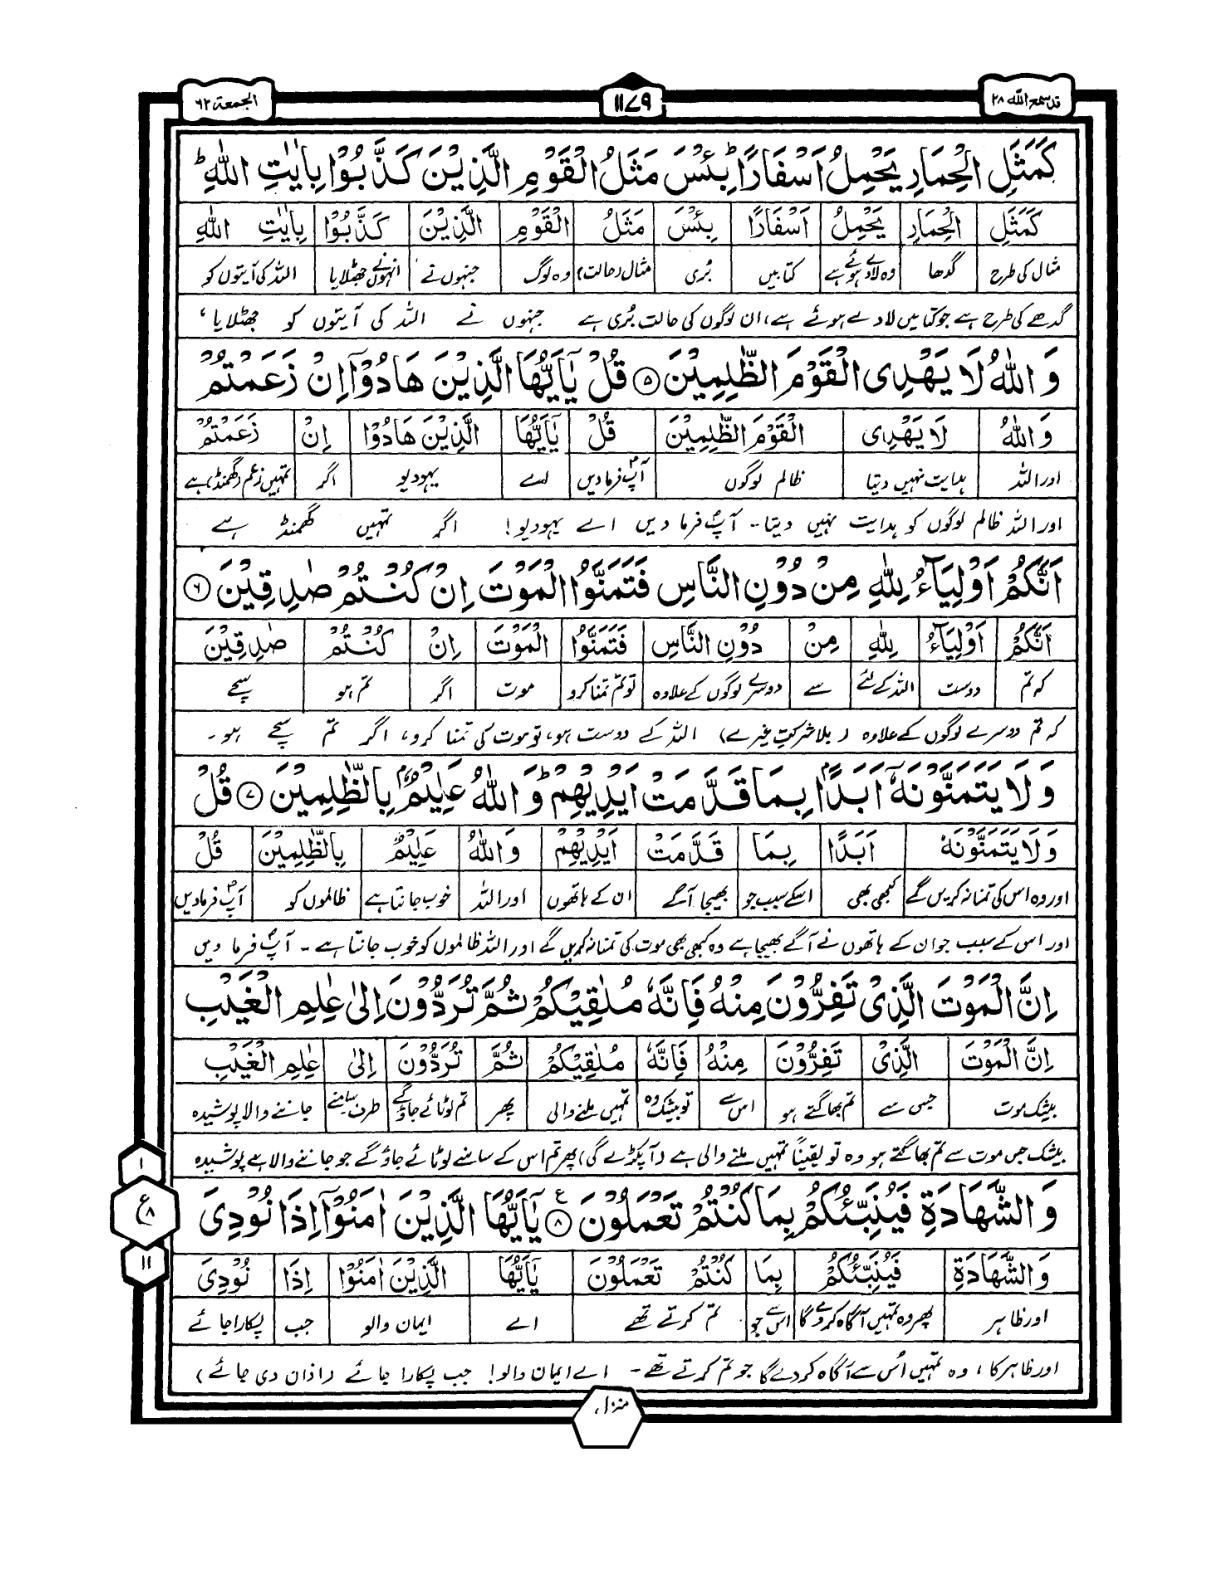 قد سمع الله ۲۸
۱۱۷۹
الجمعة ۶۲
كَمَثَلِ الْحِمَارِ يَحْمِلُ اَسْفَارًا ؕ بِئْسَ مَثَلُ الْقَوْمِ الَّذِيْنَ كَذَّبُوْا بِاٰيٰتِ اللّٰهِ ؕ
كَمَثَلِ الْحِمَارِ يَحْمِلُ اَسْفَارًا بِئْسَ مَثَلُ الْقَوْمِ الَّذِيْنَ كَذَّبُوْا بِاٰيٰتِ اللّٰهِ
مثال کی طرح گدھا وہ لادے ہوئے ہے کتابیں بُری مثال (حالت) وہ لوگ جنہوں نے انہوں نے جھٹلایا اللہ کی آیتوں کو
گدھے کی طرح ہے جو کتابیں لادے ہوئے ہے، ان لوگوں کی حالت بُری ہے جنہوں نے اللہ کی آیتوں کو جھٹلایا،
وَاللّٰهُ لَا يَهْدِى الْقَوْمَ الظّٰلِمِيْنَ ۵ قُلْ يٰۤاَيُّهَا الَّذِيْنَ هَادُوْۤا اِنْ زَعَمْتُمْ
وَاللّٰهُ لَا يَهْدِى الْقَوْمَ الظّٰلِمِيْنَ قُلْ يٰۤاَيُّهَا الَّذِيْنَ هَادُوْۤا اِنْ زَعَمْتُمْ
اور اللہ ہدایت نہیں دیتا ظالم لوگوں آپؐ فرما دیں اے یہودیو اگر تمہیں زعم (گھمنڈ) ہے
اور اللہ ظالم لوگوں کو ہدایت نہیں دیتا۔ آپؐ فرما دیں اے یہودیو! اگر تمہیں گھمنڈ ہے
اَنَّكُمْ اَوْلِيَآءُ لِلّٰهِ مِنْ دُوْنِ النَّاسِ فَتَمَنَّوُا الْمَوْتَ اِنْ كُنْتُمْ صٰدِقِيْنَ ۶
اَنَّكُمْ اَوْلِيَآءُ لِلّٰهِ مِنْ دُوْنِ النَّاسِ فَتَمَنَّوُا الْمَوْتَ اِنْ كُنْتُمْ صٰدِقِيْنَ
کہ تم دوست اللہ کے لئے سے دوسرے لوگوں کے علاوہ تو تم تمنا کرو موت اگر تم ہو سچے
کہ تم دوسرے لوگوں کے علاوہ (بلا شرکتِ غیرے) اللہ کے دوست ہو، تو موت کی تمنا کرو، اگر تم سچے ہو۔
وَلَا يَتَمَنَّوْنَهٗۤ اَبَدًۢا بِمَا قَدَّمَتْ اَيْدِيْهِمْ ؕ وَاللّٰهُ عَلِيْمٌۢ بِالظّٰلِمِيْنَ ۷ قُلْ
وَلَا يَتَمَنَّوْنَهٗ اَبَدًا بِمَا قَدَّمَتْ اَيْدِيْهِمْ وَاللّٰهُ عَلِيْمٌ بِالظّٰلِمِيْنَ قُلْ
اور وہ اس کی تمنا نہ کریں گے کبھی بھی اسکے سبب جو بھیجا آگے ان کے ہاتھوں اور اللہ خوب جانتا ہے ظالموں کو آپؐ فرما دیں
اور اس کے سبب جو ان کے ہاتھوں نے آگے بھیجا ہے وہ کبھی بھی موت کی تمنا نہ کریں گے اور اللہ ظالموں کو خوب جانتا ہے۔ آپؐ فرما دیں
اِنَّ الْمَوْتَ الَّذِىْ تَفِرُّوْنَ مِنْهُ فَاِنَّهٗ مُلٰقِيْكُمْ ثُمَّ تُرَدُّوْنَ اِلٰى عٰلِمِ الْغَيْبِ
اِنَّ الْمَوْتَ الَّذِىْ تَفِرُّوْنَ مِنْهُ فَاِنَّهٗ مُلٰقِيْكُمْ ثُمَّ تُرَدُّوْنَ اِلٰى عٰلِمِ الْغَيْبِ
بیشک موت جس سے تم بھاگتے ہو اس سے تو بیشک وہ تمہیں ملنے والی پھر تم لوٹائے جاؤ گے طرف سامنے جاننے والا پوشیدہ
بیشک جس موت سے تم بھاگتے ہو وہ تو یقیناً تمہیں ملنے والی ہے (آ پکڑے گی) پھر تم اس کے سامنے لوٹائے جاؤ گے جو جاننے والا ہے پوشیدہ
وَالشَّهَادَةِ فَيُنَبِّئُكُمْ بِمَا كُنْتُمْ تَعْمَلُوْنَ ۸ ع يٰۤاَيُّهَا الَّذِيْنَ اٰمَنُوْۤا اِذَا نُوْدِىَ
۱
ع ۸
۱۱
وَالشَّهَادَةِ فَيُنَبِّئُكُمْ بِمَا كُنْتُمْ تَعْمَلُوْنَ يٰۤاَيُّهَا الَّذِيْنَ اٰمَنُوْۤا اِذَا نُوْدِىَ
اور ظاہر پھر وہ تمہیں آگاہ کر دے گا اس سے جو تم کرتے تھے اے ایمان والو جب پکارا جائے
اور ظاہر کا، وہ تمہیں اُس سے آگاہ کر دے گا جو تم کرتے تھے۔ اے ایمان والو! جب پکارا جائے (اذان دی جائے)
منزل